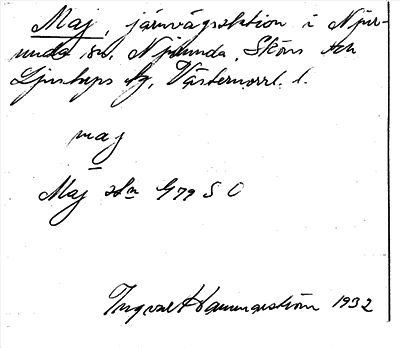 Maj, järnvägsstation i Njur-
unda sn, Njurunda, Sköns och
Ljustorps tg, Västernorrl. l.
maj
Maj stn G79 S O
Ingvar Hammarström 1932